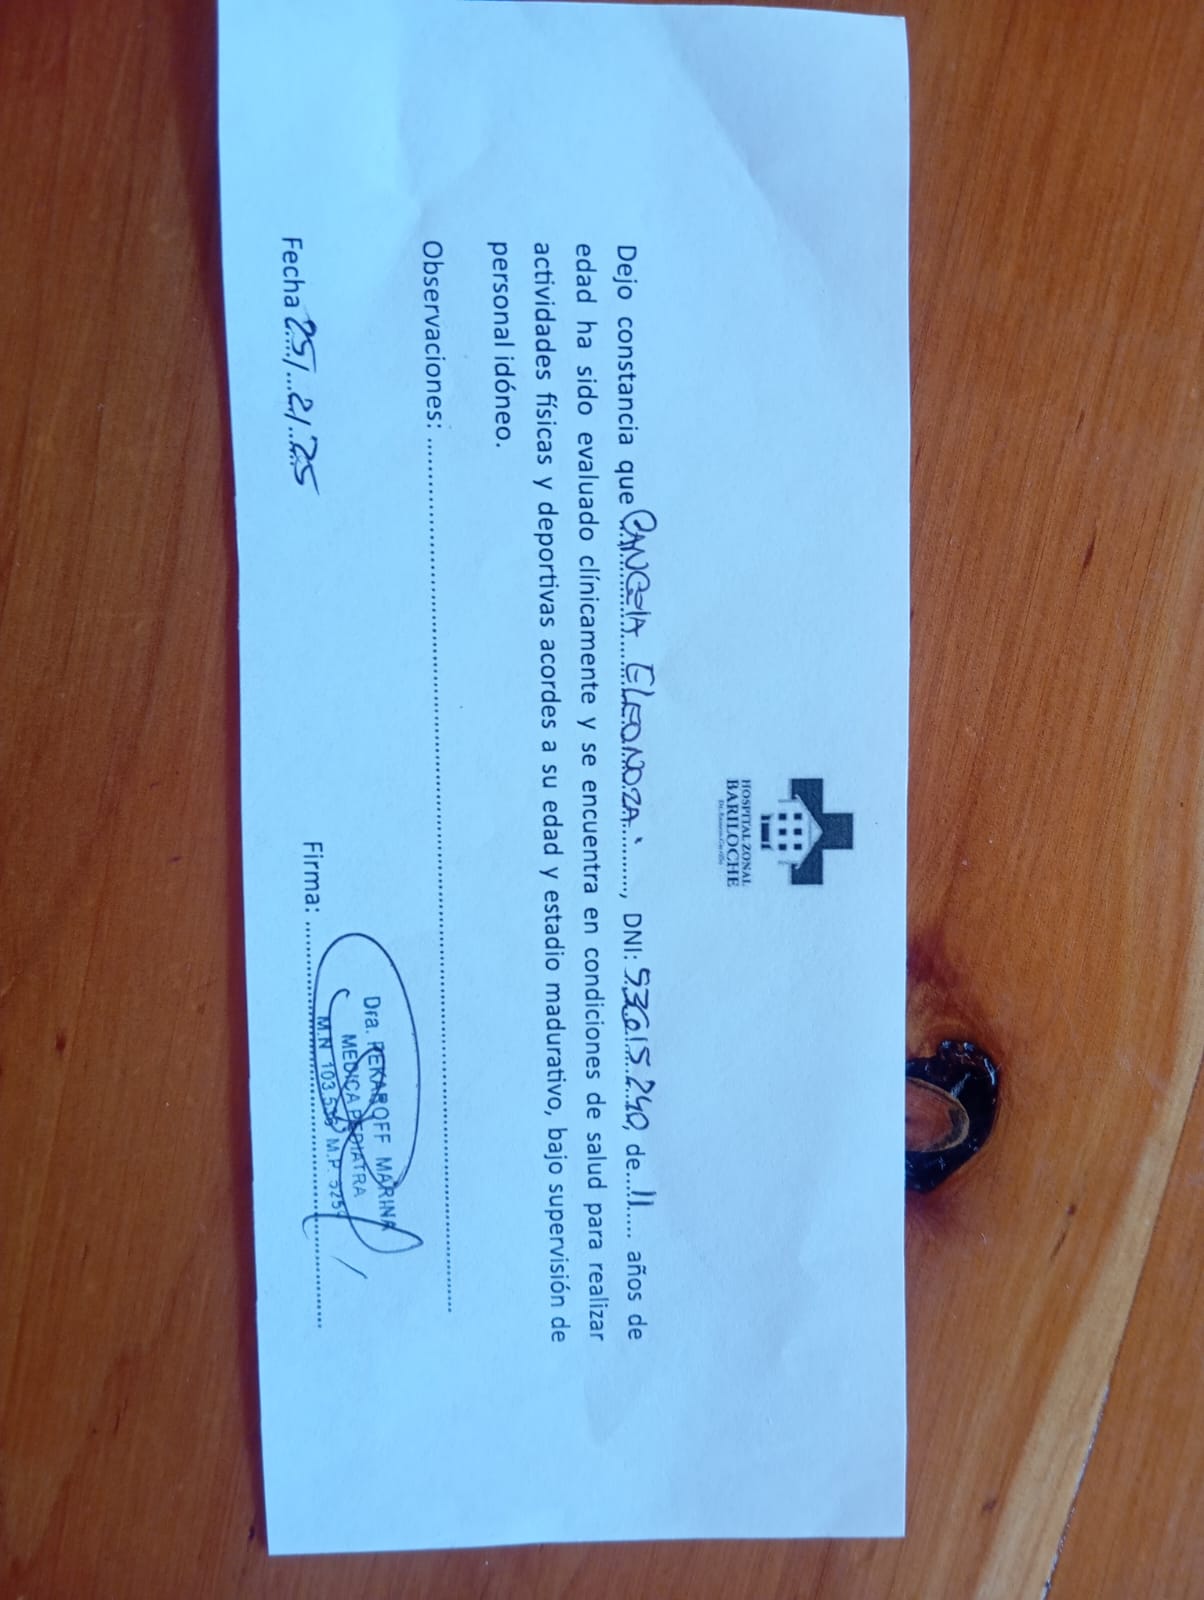 HOSPITAL ZONAL
BARILOCHE
Dr. Ramón Carrillo
Dejo constancia que CANGIA ELEONORA, DNI: 53615240, de 11 años de
edad ha sido evaluado clínicamente y se encuentra en condiciones de salud para realizar
actividades físicas y deportivas acordes a su edad y estadio madurativo, bajo supervisión de
personal idóneo.
Observaciones:
Fecha 25/2/25
Firma:
Dra. REKAROFF MARINA
MEDICA PEDIATRA
M.N 103 M.P.